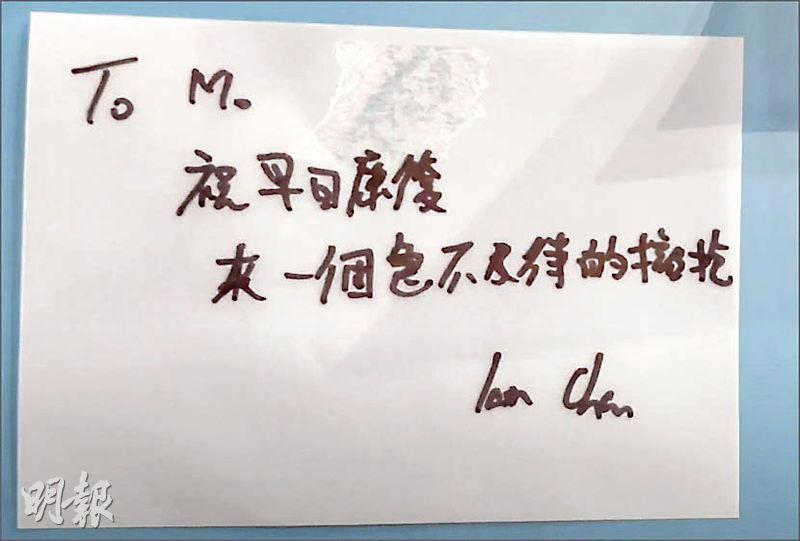 To M.
祝早日康復
來一個急不及待的擁抱
Ian Chan
明報